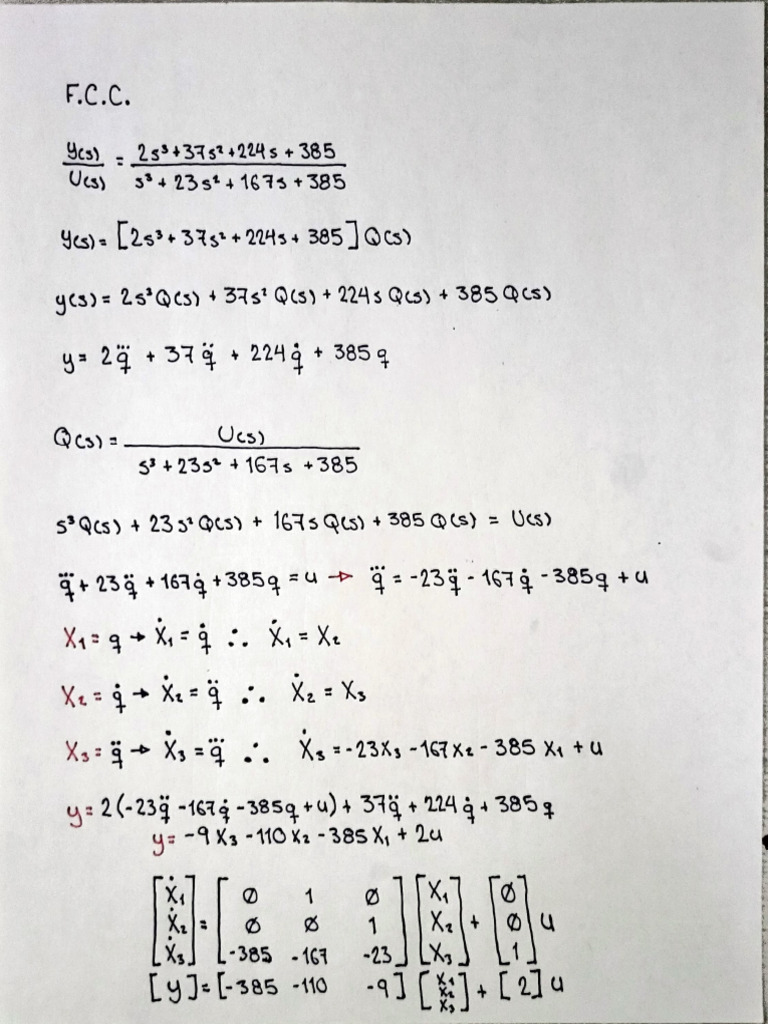 F.C.C.
Y(s)/U(s) = (2s³+37s²+224s+385)/(s³+23s²+167s+385)
y(s) = [2s³+37s²+224s+385]Q(s)
y(s) = 2s³Q(s) + 37s²Q(s) + 224sQ(s) + 385Q(s)
y = 2q⃛ + 37q̈ + 224q̇ + 385q
Q(s) = U(s)/(s³+23s²+167s+385)
s³Q(s) + 23s²Q(s) + 167sQ(s) + 385Q(s) = U(s)
q⃛ + 23q̈ + 167q̇ + 385q = u → q⃛ = -23q̈ - 167q̇ - 385q + u
X₁ = q → Ẋ₁ = q̇ ∴ Ẋ₁ = X₂
X₂ = q̇ → Ẋ₂ = q̈ ∴ Ẋ₂ = X₃
X₃ = q̈ → Ẋ₃ = q⃛ ∴ Ẋ₃ = -23X₃ - 167X₂ - 385X₁ + u
y = 2(-23q̈ - 167q̇ - 385q + u) + 37q̈ + 224q̇ + 385q
y = -9X₃ - 110X₂ - 385X₁ + 2u
[Ẋ₁] [∅ 1 ∅] [X₁] [∅]
[Ẋ₂] = [∅ ∅ 1] [X₂] + [∅] u
[Ẋ₃] [-385 -167 -23] [X₃] [1]
[y] = [-385 -110 -9] [X₁ X₂ X₃] + [2] u